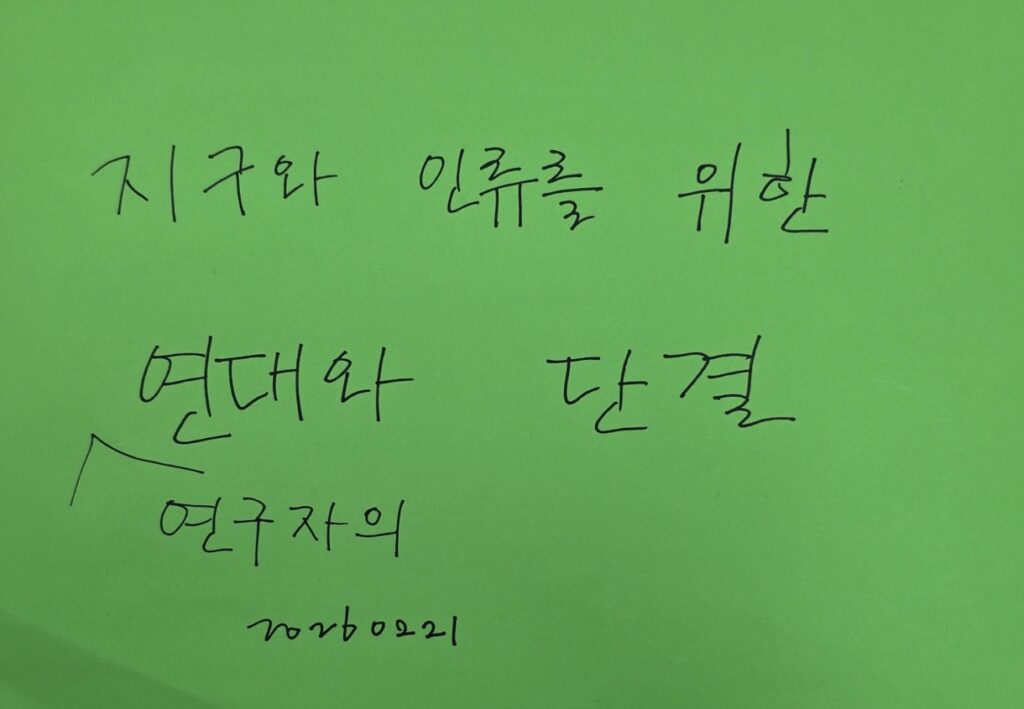 지구와 인류를 위한
연대와 단결
연구자의
20260221